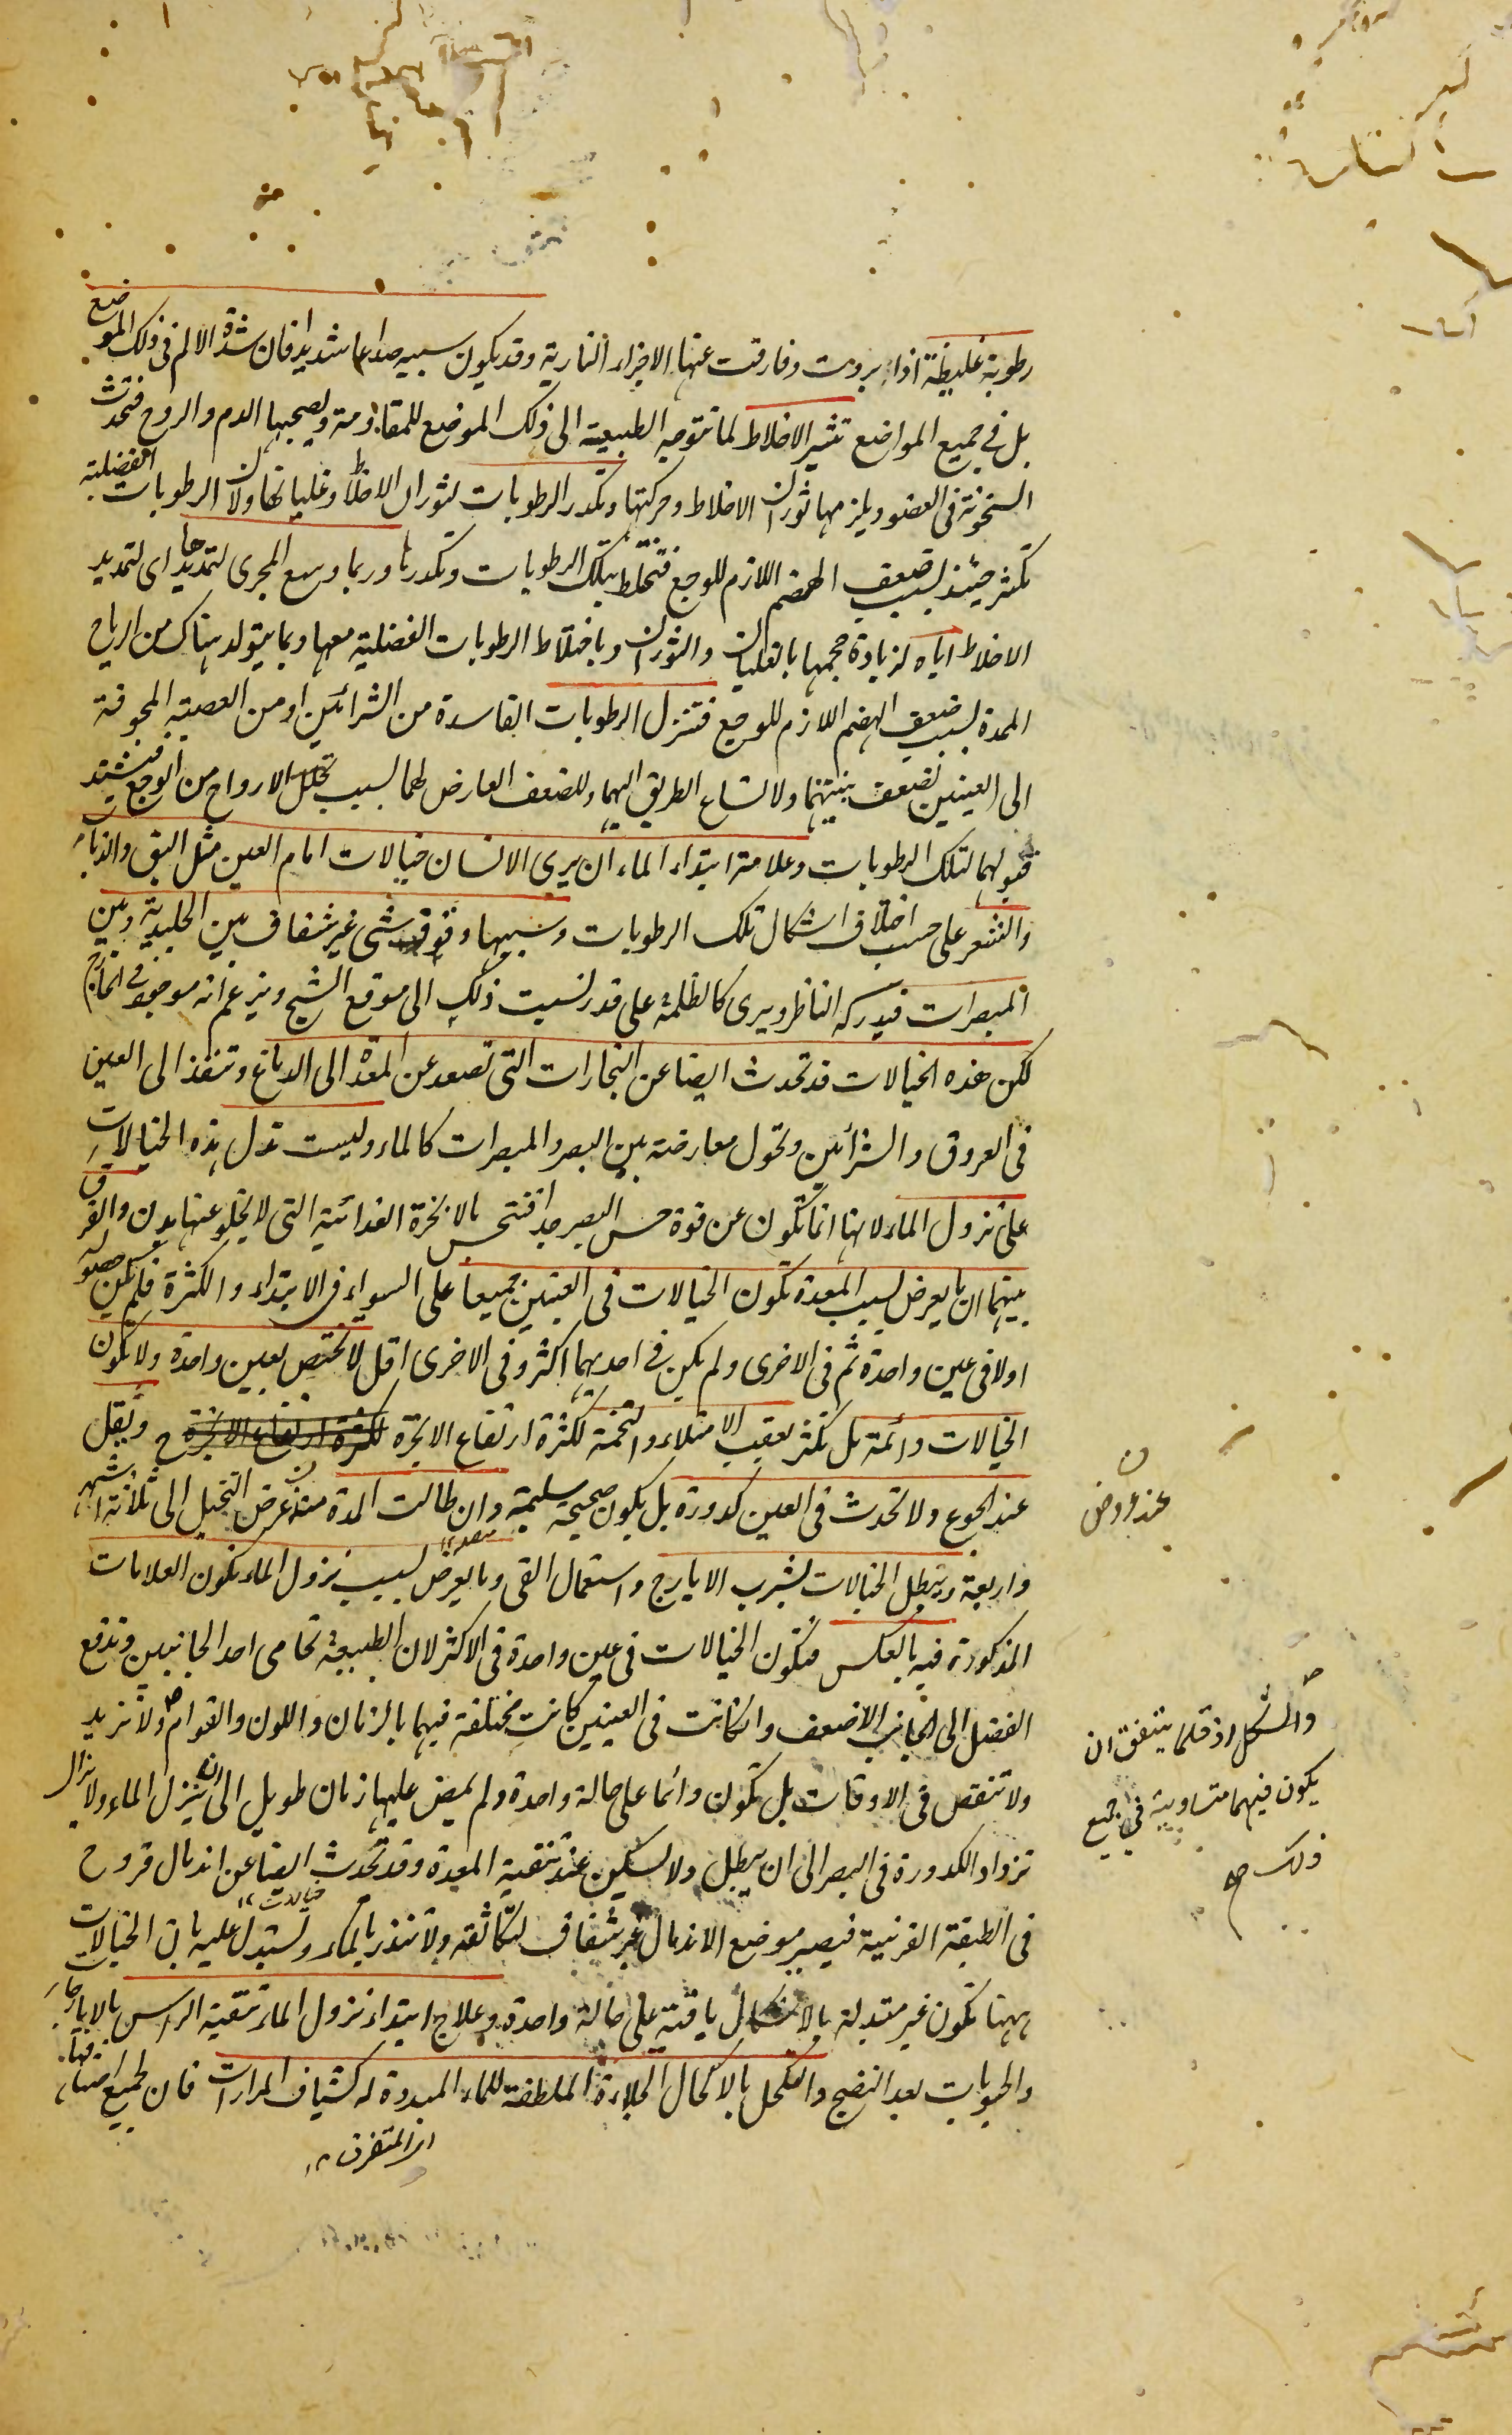 رطوبة غليظة اذا بردت وفارقت عنها الاجزاء النارية وقد يكون سببه صداعا شديدا فان شدة الالم فى ذلك الموضع
بل فى جميع المواضع تثير الاخلاط لما تتوجه الطبيعة الى ذلك الموضع للمقاومة ويصحبها الدم والروح فتحدث
السخونة فى العضو ويلزمها ثوران الاخلاط وحركتها وتكدر الرطوبات لثوران الاخلاط وغليانها ولان الرطوبات الفضلية
تكثر حينئذ بسبب ضعف الهضم اللازم للوجع فتختلط بتلك الرطوبات وتكدرها وربما وسع المجرى لتمديدها اى لتمديد
الاخلاط اياه لزيادة حجمها بالغليان والثوران وباختلاط الرطوبات الفضلية معها وبما يتولد هناك من الرياح
الممدة بسبب ضعف الهضم اللازم للوجع فتنزل الرطوبات الفاسدة من الشرائين او من العصبة المجوفة
الى العينين لضعف بنيتهما ولاتساع الطريق اليهما وللضعف العارض لهما بسبب تحلل الارواح من الوجع فيشتد
قبولهما لتلك الرطوبات وعلامة ابتداء الماء ان يرى الانسان خيالات امام العين مثل البق والذباب
والشعر على حسب اختلاف اشكال تلك الرطوبات وسببها وقوف شئ غير شفاف بين الجليدية وبين
المبصرات فيدركه الناظر ويرى كالظلمة على قدر نسبت ذلك الى موقع الشبح ويزعم انه موجود فى الخارج
لكن هذه الخيالات قد تحدث ايضا عن البخارات التى تصعد عن المعدة الى الدماغ وتنفذ الى العين
فى العروق والشرائين وتحول معارضة بين البصر والمبصرات كالماء وليست تدل هذه الخيالات
على نزول الماء لانها انما تكون عن قوة حس البصر جدا فتحس بالابخرة الغذائية التى لا يخلو عنها بدن والفرق
بينهما ان ما يعرض بسبب المعدة تكون الخيالات فى العينين جميعا على السواء فى الابتداء والكثرة فلم يكن حصوله
اولا فى عين واحدة ثم فى الاخرى ولم يكن فى احديهما اكثر وفى الاخرى اقل لا تختص بعين واحدة ولا تكون
الخيالات دائمة بل تكثر بعقيب الامتلاء والتخمة لكثرة ارتفاع الابخرة لكثرة ارتفاع الابخرة ح وتقل
عند الجوع ولا تحدث فى العين كدورة بل يكون صحيحة سليمة وان طالت المدة منذ عرض التخيل الى ثلثة اشهر
واربعة وتبطل الخيالات بشرب الايارج واستعمال القى وما يعرض بسبب نزول الماء تكون العلامات
المذكورة فيه بالعكس فتكون الخيالات فى عين واحدة فى الاكثر لان الطبيعة تحامى احد الجانبين وتدفع
الفضل الى الجانب الاضعف وان كانت فى العينين كانت مختلفة فيهما بالزمان واللون والقوام ولا تزيد
ولا تنقص فى الاوقات بل تكون دائما على حالة واحدة ولم يمض عليها زمان طويل الى ان ينزل الماء ولا يزال
تزداد الكدورة فى البصر الى ان يبطل ولا يسكن عند تنقية المعدة وقد تحدث ايضا عن اندمال قروح
فى الطبقة القرنية فيصير موضع الاندمال غير شفاف لتكاثفه ولا تنذر بالماء ويستدل عليه بان الخيالات
ههنا تكون غير متبدلة بالاشكال باقية على حالة واحدة وعلاج ابتداء نزول الماء تنقية الراس بالايارجات
والحبوبات بعد النضج والتكحل بالاكحال الجلاءة الملطفة للماء المبددة له كشياف المرارات فان لجميع اصنافها
عند عروض
والشكل اذ قلما يتفق ان
يكون فيهما متساوية فى جميع
ذلك صح